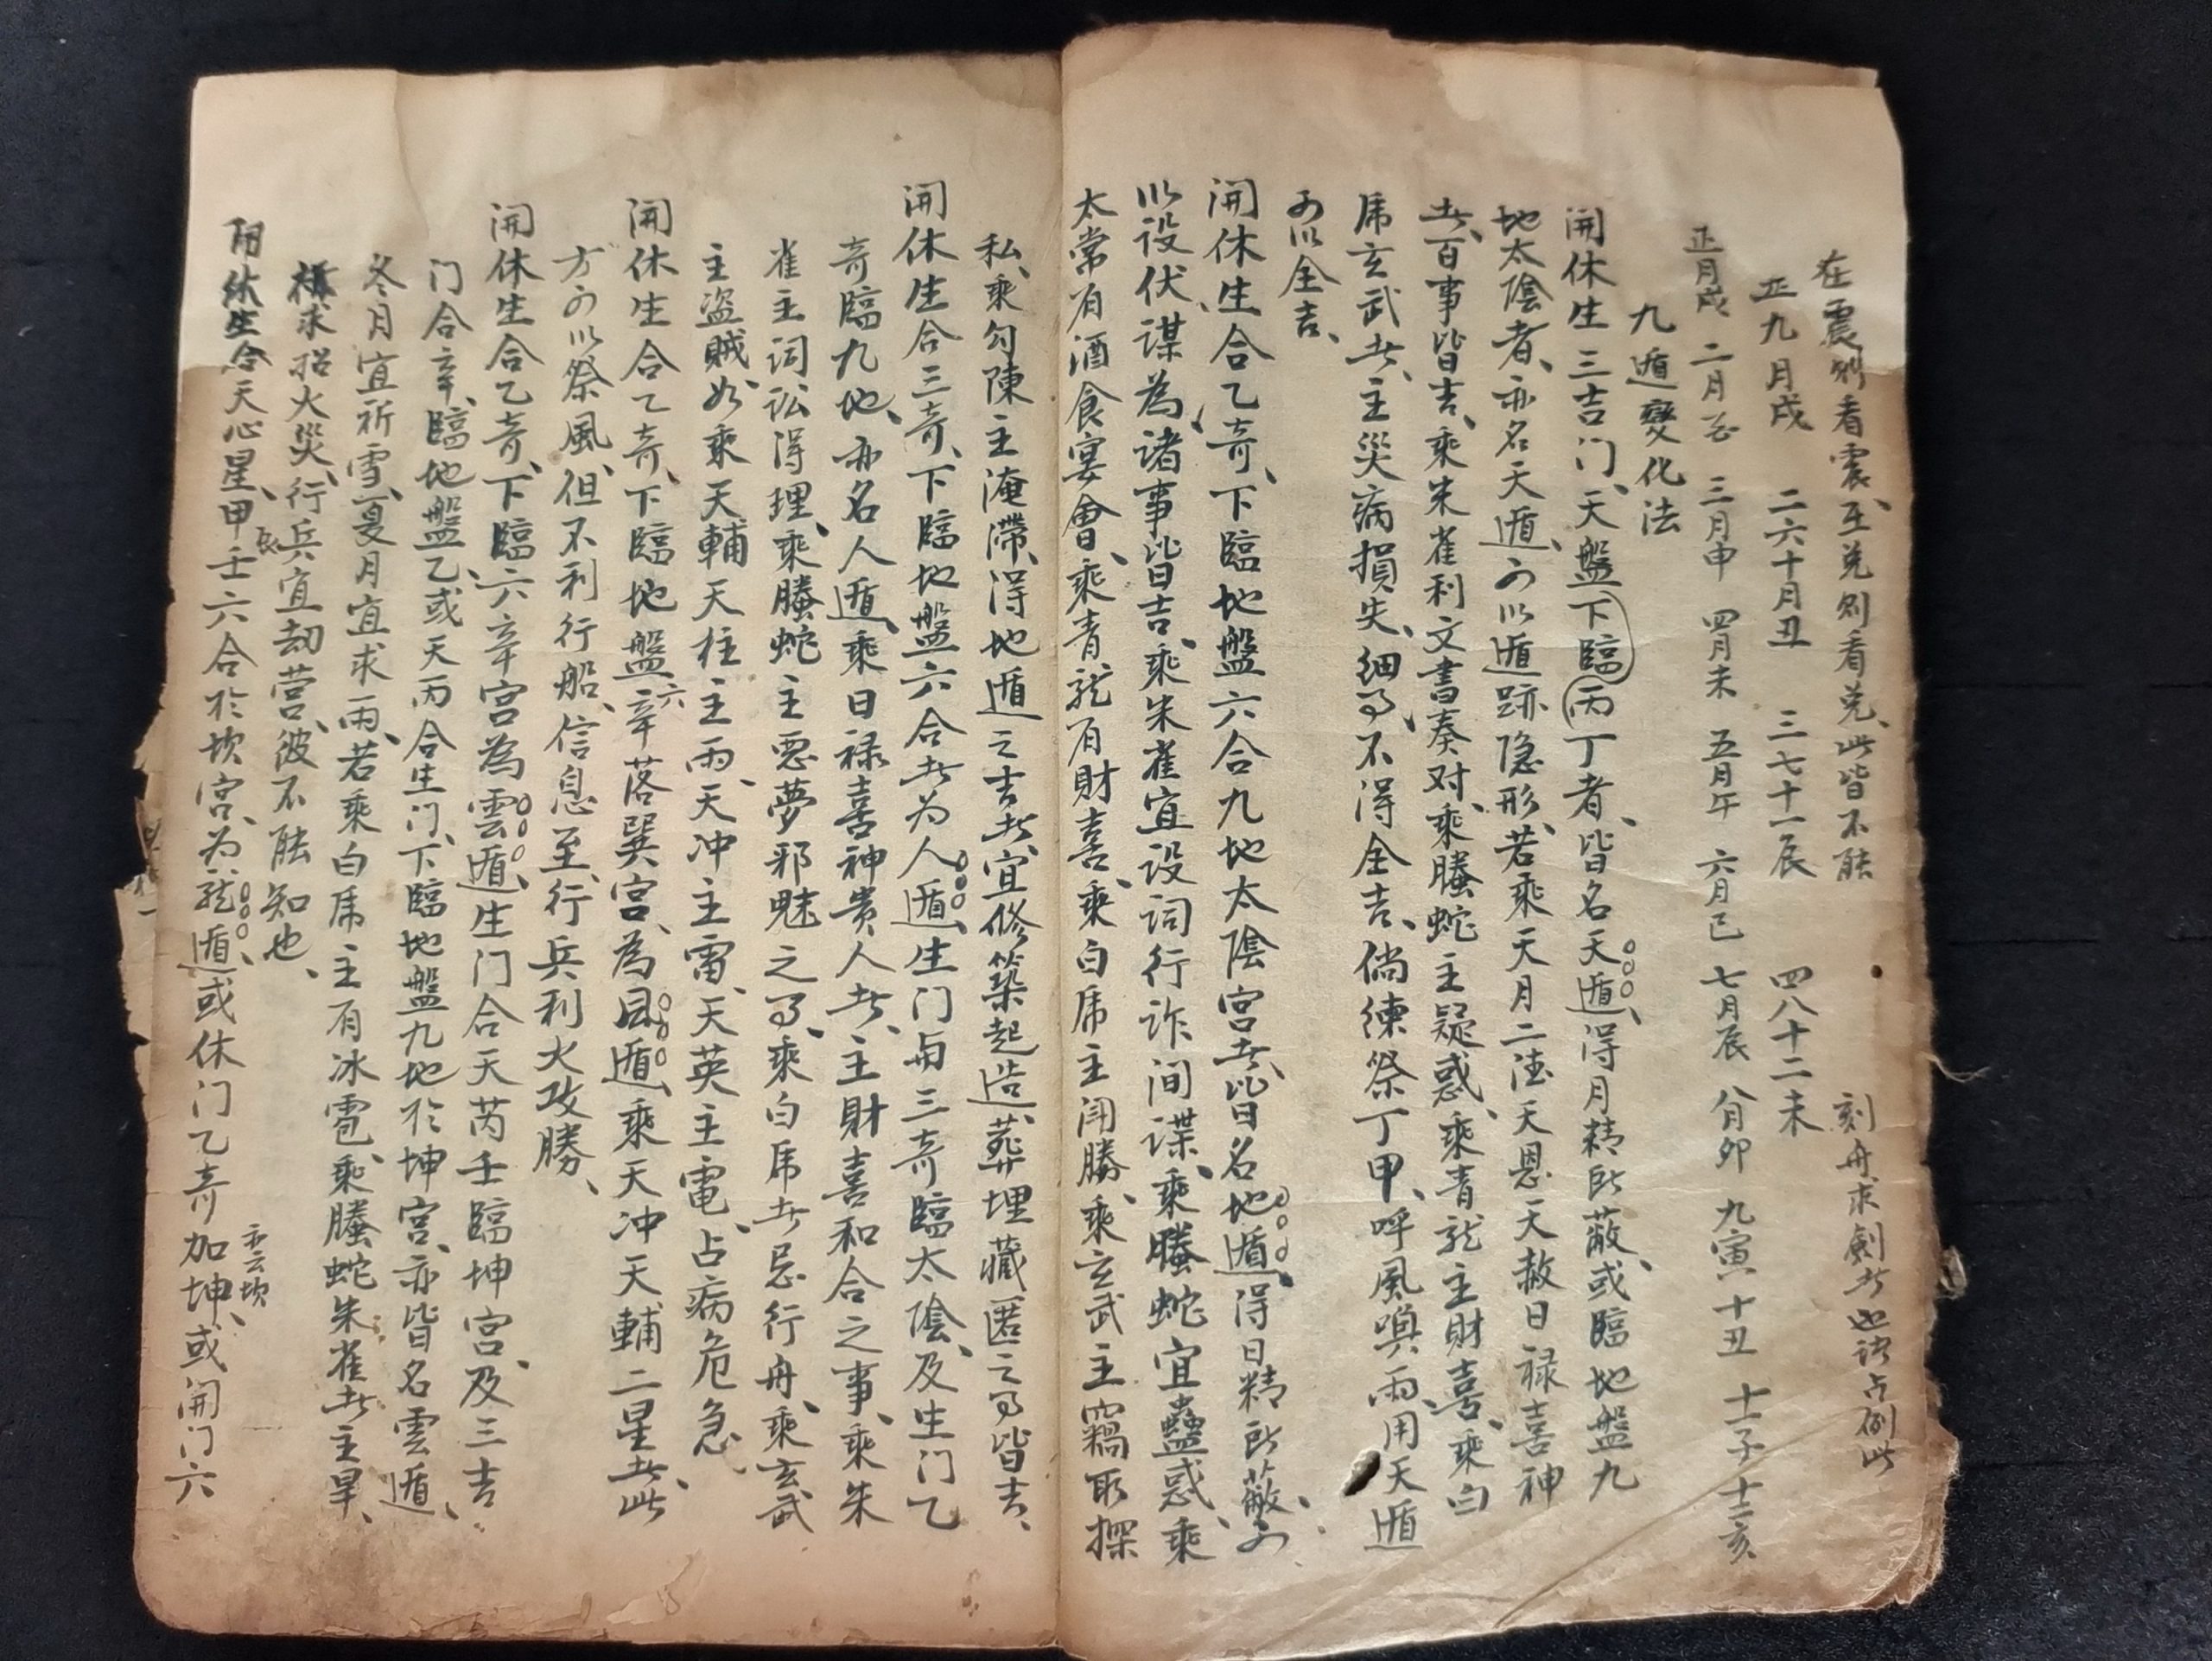 在震則看震、至兌則看兌、此皆不能
刻舟求劍者也諸占例此
正九月戌　二六十月丑　三七十一辰　四八十二未
正月戌　二月　三月申　四月未　五月午　六月已　七月辰　八月卯　九寅　十丑　十一子　十二亥
九遁變化法
開休生三吉门、天盤下臨丙丁者、皆名天遁、得月精所蔽、或臨地盤九
地太陰者、亦名天遁、可以遁跡隐形、若乘天月二德天恩天赦日禄喜神
者、百事皆吉、乘朱雀利文書奏对、乘螣蛇主疑惑、乘青龙主財喜、乘白
虎玄武者、主災病損失、细事不得全吉、倘練祭丁甲、呼風唤雨、用天遁
可以全吉、
開休生合乙奇、下臨地盤六合九地太陰宫者、皆名地遁、得日精所蔽、可
以设伏、谋為诸事皆吉、乘朱雀宜设词行诈间谍、乘螣蛇宜蠱惑、乘
太常有酒食宴會、乘青龙有財喜、乘白虎主闹勝、乘玄武主竊取探
私、乘勾陳主淹滯、得地遁之吉者、宜修築起造葬埋藏匿之事皆吉、
開休生合三奇、下臨地盤六合者为人遁、生门與三奇臨太陰、及生门乙
奇臨九地、亦名人遁、乘日禄喜神貴人者、主財喜和合之事、乘朱
雀主词讼得理、乘螣蛇主惡夢邪魅之事、乘白虎者忌行舟、乘玄武
主盗賊、如乘天輔天柱主雨、天冲主雷、天英主電、占病危急
開休生合乙奇、下臨地盤六辛落巽宫、為風遁、乘天冲天輔二星者、此
方可以祭風、但不利行船、信息至、行兵利火攻勝、
開休生合乙奇、下臨六辛宫為雲遁、生门合天芮壬臨坤宫、及三吉
门合辛、臨地盤乙、或天丙合生门、下臨地盤九地於坤宫、亦皆名雲遁、
冬月宜祈雪、夏月宜求雨、若乘白虎主有冰雹、乘螣蛇朱雀者主旱、
求招火災、行兵宜劫营、彼不能知也、
開休生合天心星、甲壬六合於坎宫、为龙遁、或休门乙奇加坤、或開门六